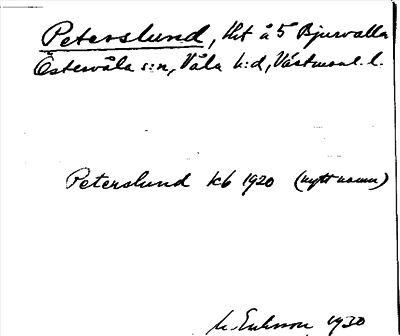 Peterslund, Hit å 5 Bjurvalla
Östervåla s:n, Våla h:d, Västmanl. l.
Peterslund kb 1920 (nytt namn)
M. Eriksson 1930